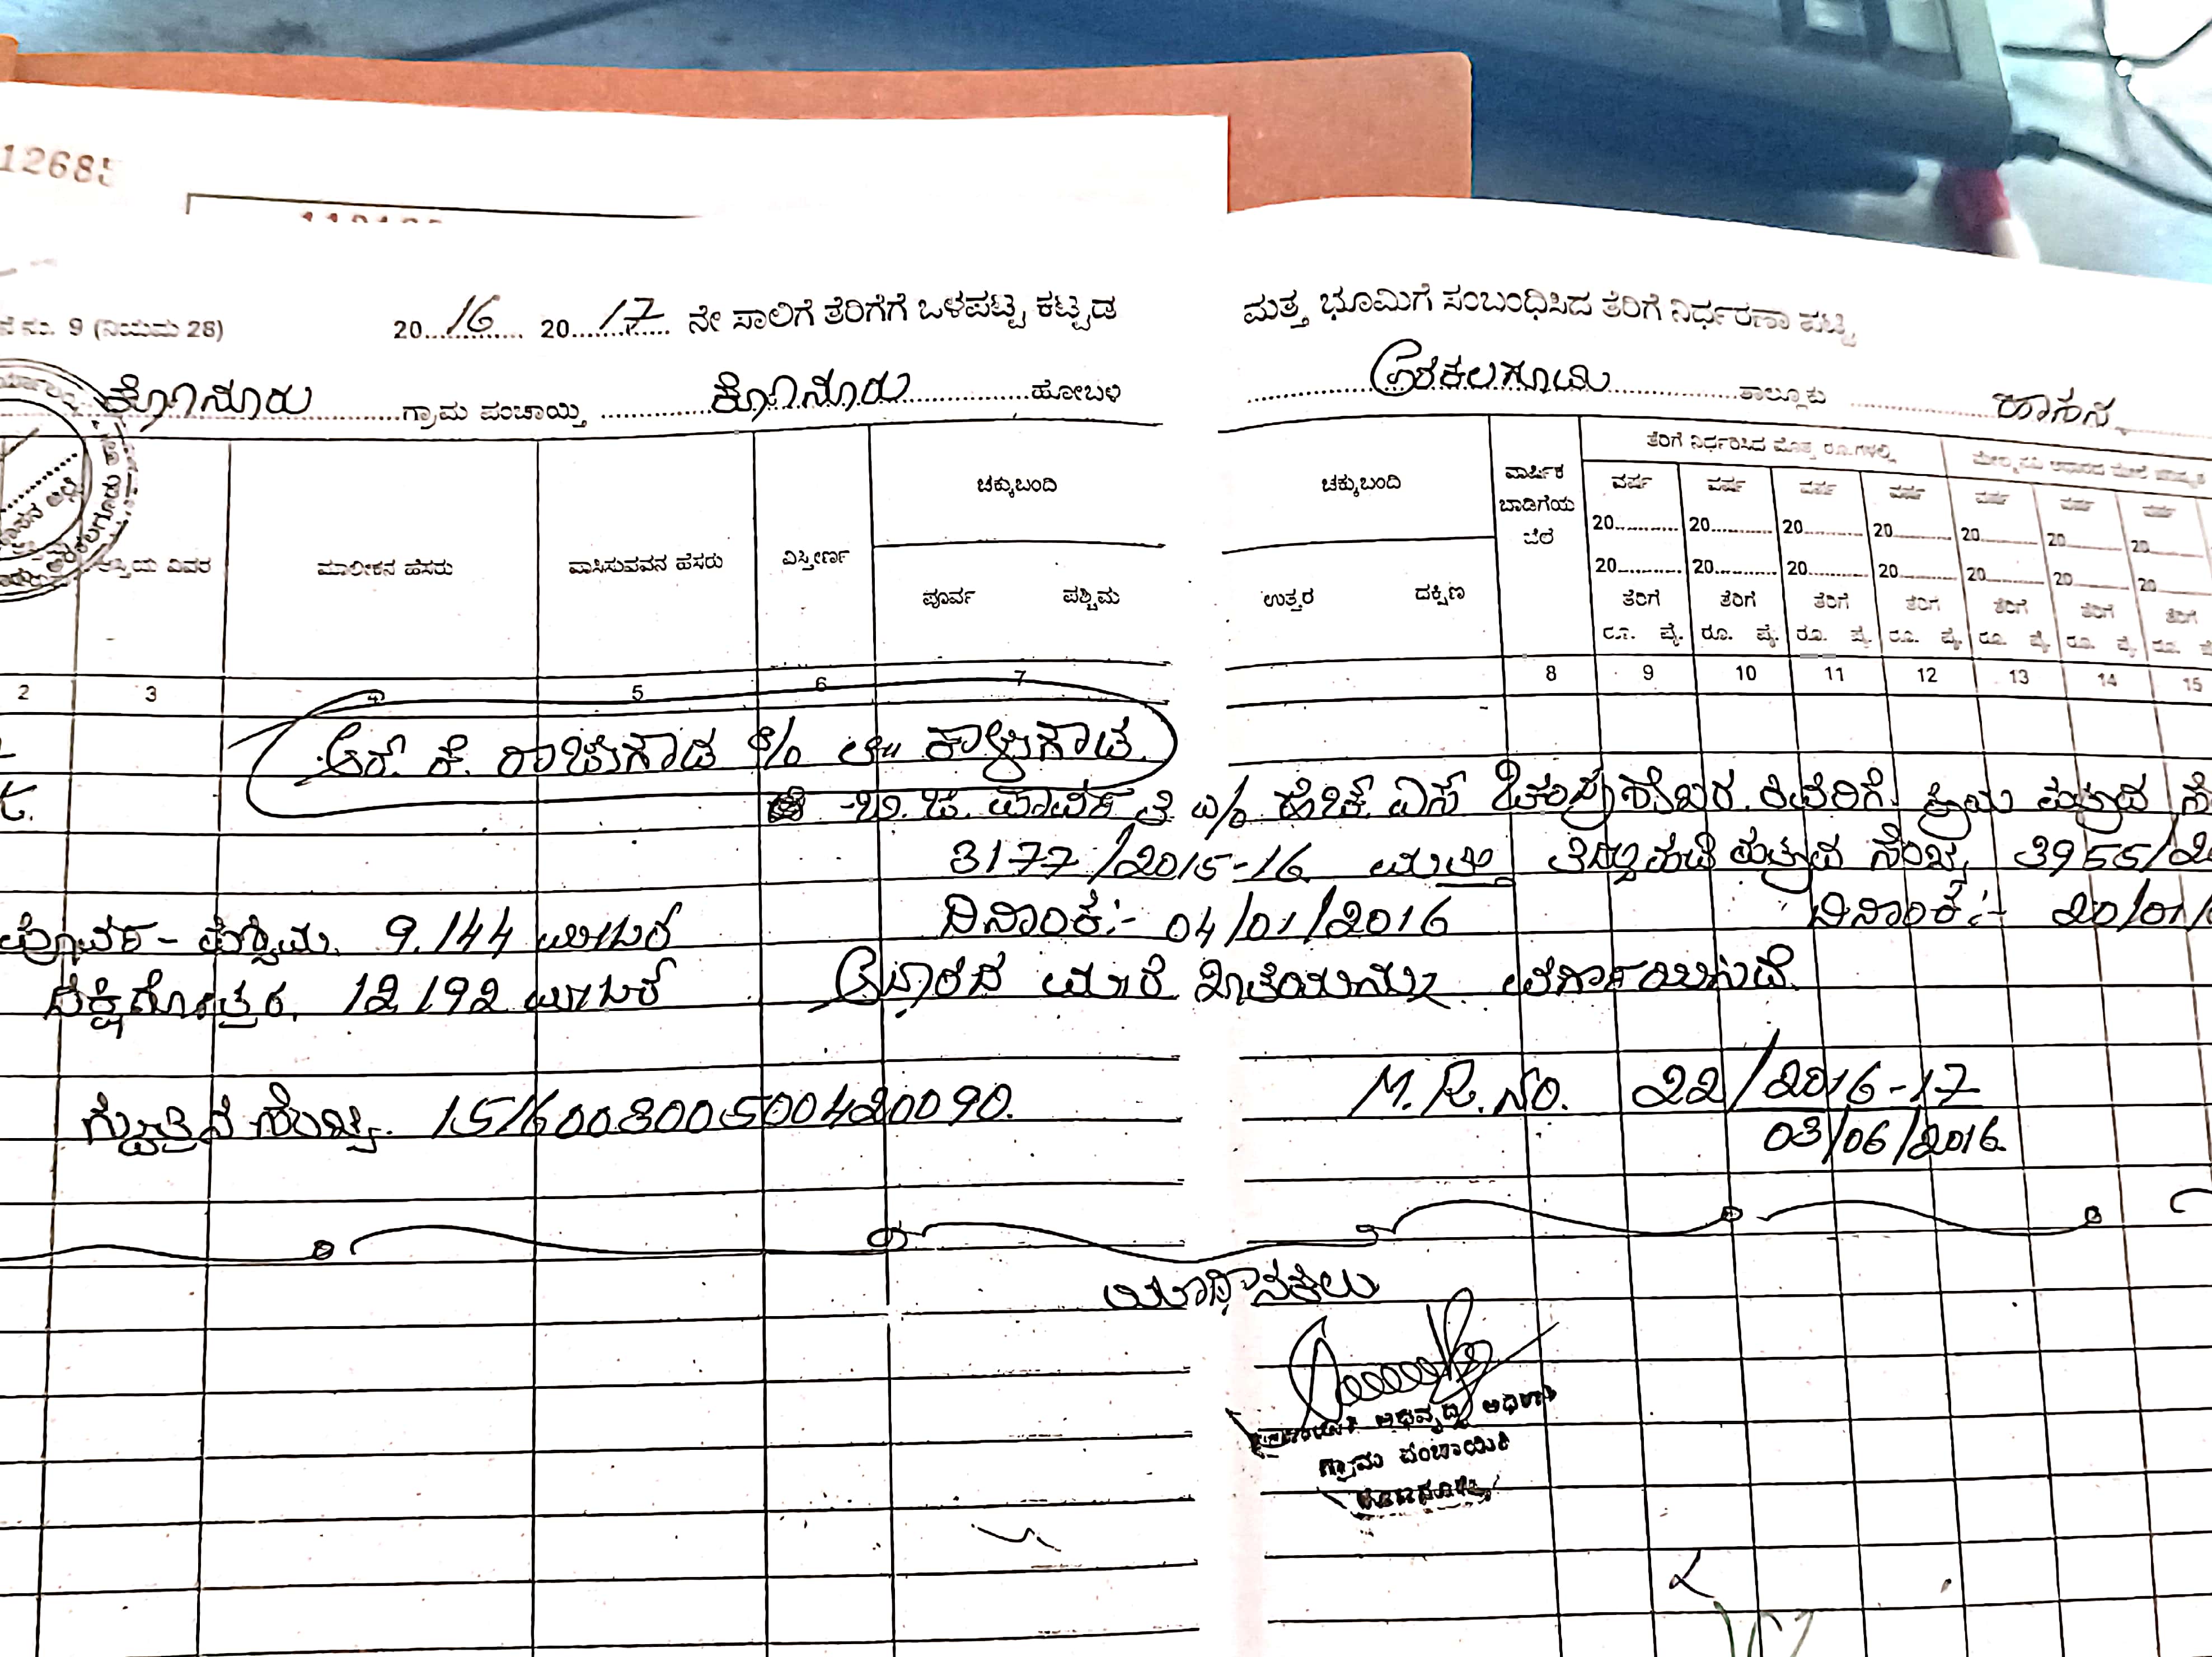 12685
ನೆ ನಂ. 9 (ನಿಯಮ 28) 20 16 20 17 ನೇ ಸಾಲಿಗೆ ತೆರಿಗೆಗೆ ಒಳಪಟ್ಟ ಕಟ್ಟಡ ಮತ್ತ ಭೂಮಿಗೆ ಸಂಬಂಧಿಸಿದ ತೆರಿಗೆ ನಿರ್ಧರಣಾ ಪಟ್ಟಿ
ಕೊಣನೂರು ಗ್ರಾಮ ಪಂಚಾಯ್ತಿ ಕೊಣನೂರು ಹೋಬಳಿ ಅರಕಲಗೂಡು ತಾಲ್ಲೂಕು ಹಾಸನ
ಆಸ್ತಿಯ ವಿವರ ಮಾಲೀಕನ ಹೆಸರು ವಾಸಿಸುವವನ ಹೆಸರು ವಿಸ್ತೀರ್ಣ ಚಕ್ಕುಬಂದಿ ಚಕ್ಕುಬಂದಿ ವಾರ್ಷಿಕ ಬಾಡಿಗೆಯ ಬೆಲೆ ತೆರಿಗೆ ನಿರ್ಧರಿಸಿದ ಮೊತ್ತ ರೂ.ಗಳಲ್ಲಿ
ವರ್ಷ ವರ್ಷ ವರ್ಷ ವರ್ಷ ವರ್ಷ ವರ್ಷ ವರ್ಷ
20 20 20 20 20 20 20
20 20 20 20 20 20 20
ಪೂರ್ವ ಪಶ್ಚಿಮ ಉತ್ತರ ದಕ್ಷಿಣ ತೆರಿಗೆ ತೆರಿಗೆ ತೆರಿಗೆ ತೆರಿಗೆ ತೆರಿಗೆ ತೆರಿಗೆ ತೆರಿಗೆ
ರೂ. ಪೈ. ರೂ. ಪೈ. ರೂ. ಪೈ. ರೂ. ಪೈ. ರೂ. ಪೈ. ರೂ. ಪೈ. ರೂ.
2 3 4 5 6 7 8 9 10 11 12 13 14 15
ಆರ್. ಕೆ. ರಾಚುಗೌಡ S/o ಲೇ॥ ಕಾಳೇಗೌಡ
W/o ಹೆಚ್ ಎಸ್ ರವರಿಗೆ ಕ್ರಯ ಪತ್ರದ ನೆಂ
3177/2015-16 ಮತ್ತು ತಿದ್ದುಪಡಿ ಪತ್ರದ ನೆಂಬ್ರ 3955/20
ಪೂರ್ವ - ಪಶ್ಚಿಮ 9.144 ಮೀಟರ್ ದಿನಾಂಕ:- 04/01/2016 ದಿನಾಂಕ:- 20/01/
ದಕ್ಷಿಣೋತ್ತರ 12.192 ಮೀಟರ್ ಆಧಾರದ ಮೇರೆ ಖಾತೆಯನ್ನು ವರ್ಗಾಯಿಸಿದೆ.
ಸ್ವತ್ತಿನ ಸಂಖ್ಯೆ 151600800500420090. M.R.NO. 22/2016-17
03/06/2016
ಅಭಿವೃದ್ಧಿ ಅಧಿಕಾರಿ
ಗ್ರಾಮ ಪಂಚಾಯಿತಿ
ಕೊಣನೂರು